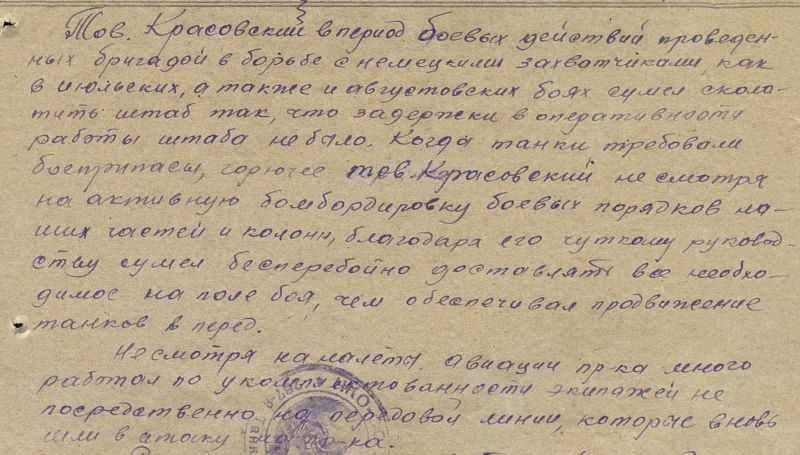 Тов. Красовский в период боевых действий проведен-
ных бригадой в борьбе с немецкими захватчиками, как
в июльских, а также и августовских боях сумел сколо-
тить штаб так, что задержки в оперативности
работы штаба не было. Когда танки требовали
боеприпасы, горючее тов. Красовский не смотря
на активную бомбордировку боевых порядков на-
ших частей и колонн, благодаря его чуткому руковод-
ству сумел бесперебойно доставлять все необхо-
димое на поле боя, чем обеспечивал продвижение
танков в перед.
Не смотря на налеты авиации пр-ка много
работал по укомплектованности экипажей не
посредственно на передовой линии, которые вновь
шли в атаку на пр-ка.